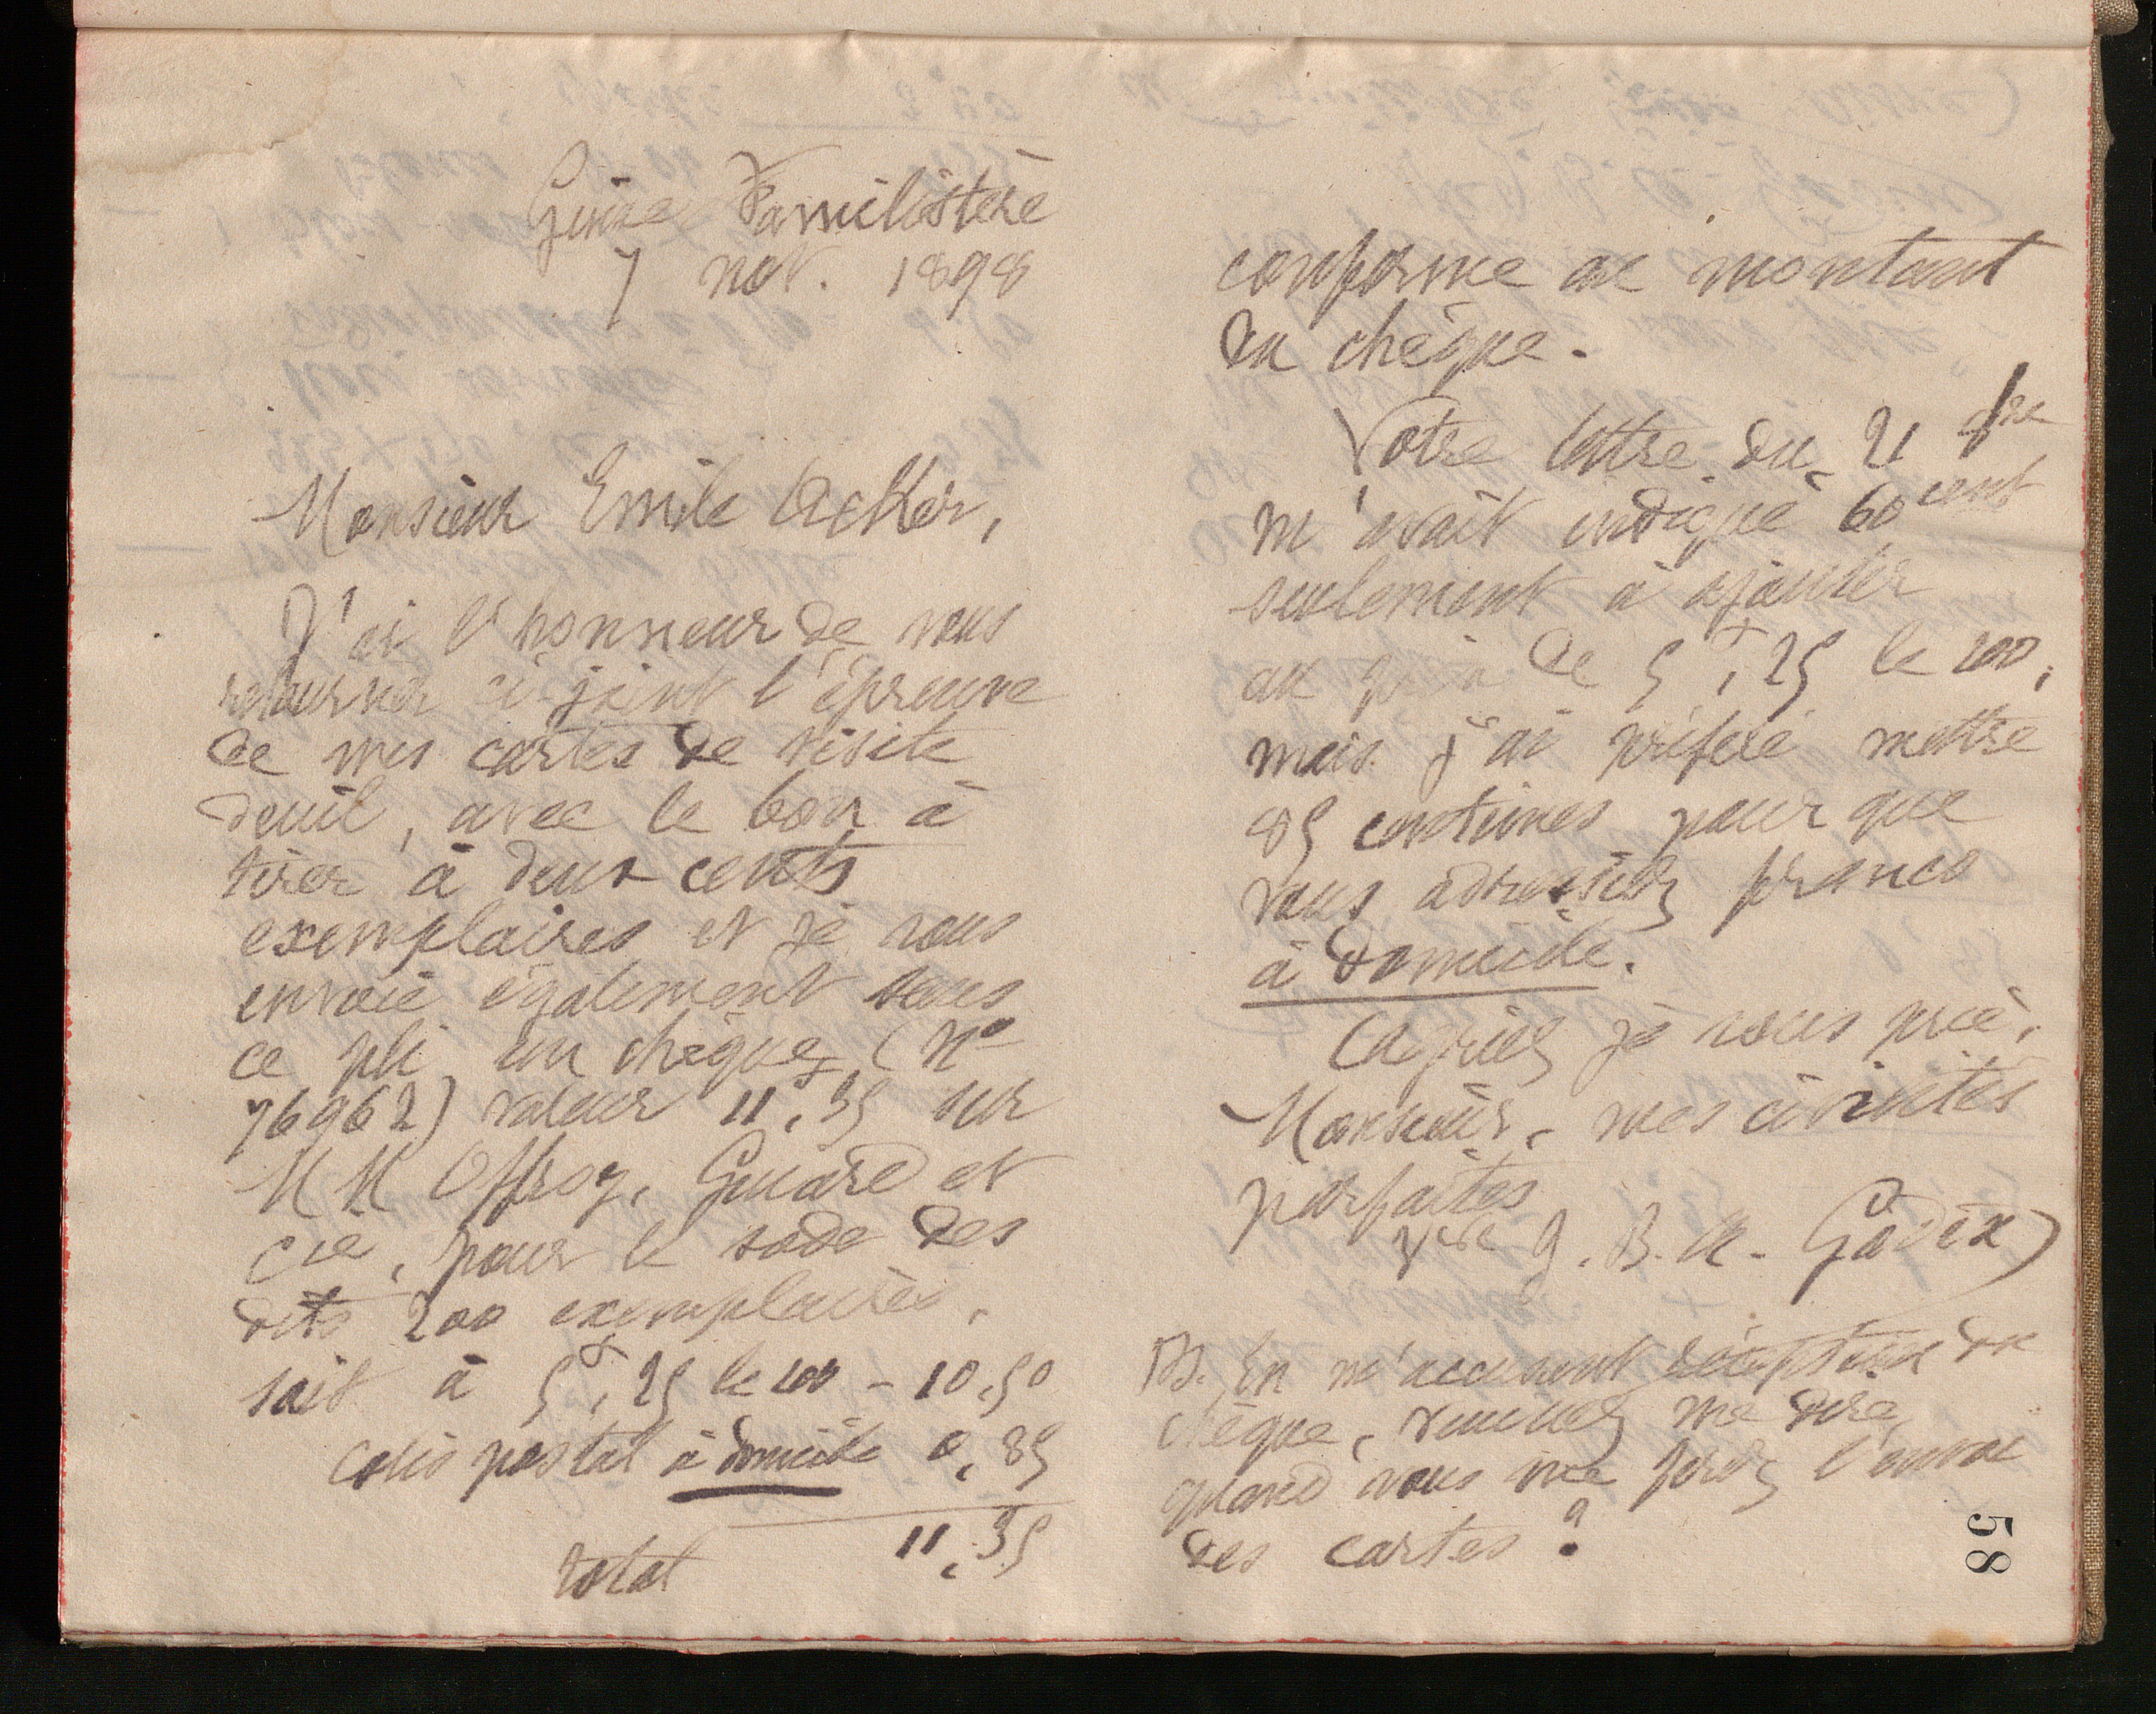 Guise Familistère
7 nov. 1898
Monsieur Emile Acker,
J'ai l'honneur de vous
retourner ci-joint l'épreuve
de mes cartes de visite
deuil, avec le bon à
tirer à deux cents
exemplaires et je vous
envoie également sous
ce pli un chèque (No
76962) valeur 11,35 sur
MM Offroy, Guiard et
Cie, pour le solde des
dits 200 exemplaires,
soit à 5f,25 le 100 - 10,50
Colis postal à domicile 0,85
total 11,35
conforme au montant
du chèque.
Votre lettre du 21
m'avait indiqué 60 cent
seulement à ajouter
au prix de 5f,25 le 100,
mais j'ai préféré mettre
85 centimes pour que
vous adressiez franco
à domicile.
Agréez je vous prie,
Monsieur, mes civilités
parfaites
Vve J. B. A. Godin
P.S. En m'accusant réception du
chèque, veuillez me dire
quand vous me ferez l'envoi
des cartes ?
58